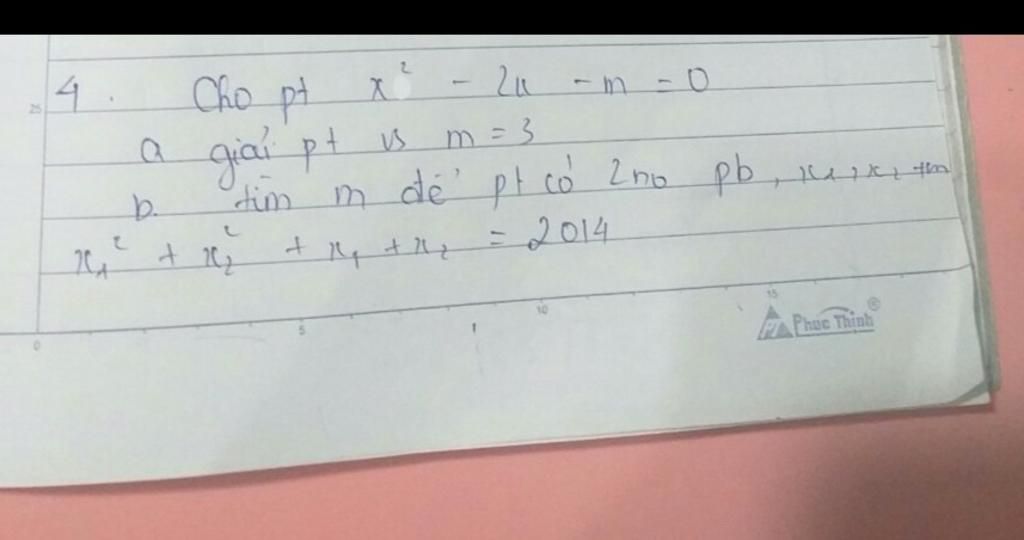 4. Cho pt x² - 2x - m = 0
a giải pt vs m = 3
b. tìm m để pt có 2 no pb, x₁, x₂ tm
x₁² + x₂² + x₁ + x₂ = 2014
25
0 5 10 15
Phuc Thinh®